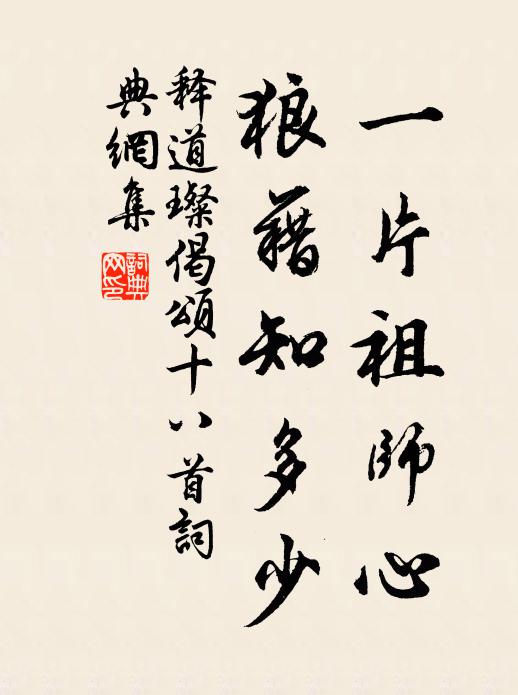 一片祖師心
狼藉知多少
释道璨偈頌十八首詞
典網集
詞典网印